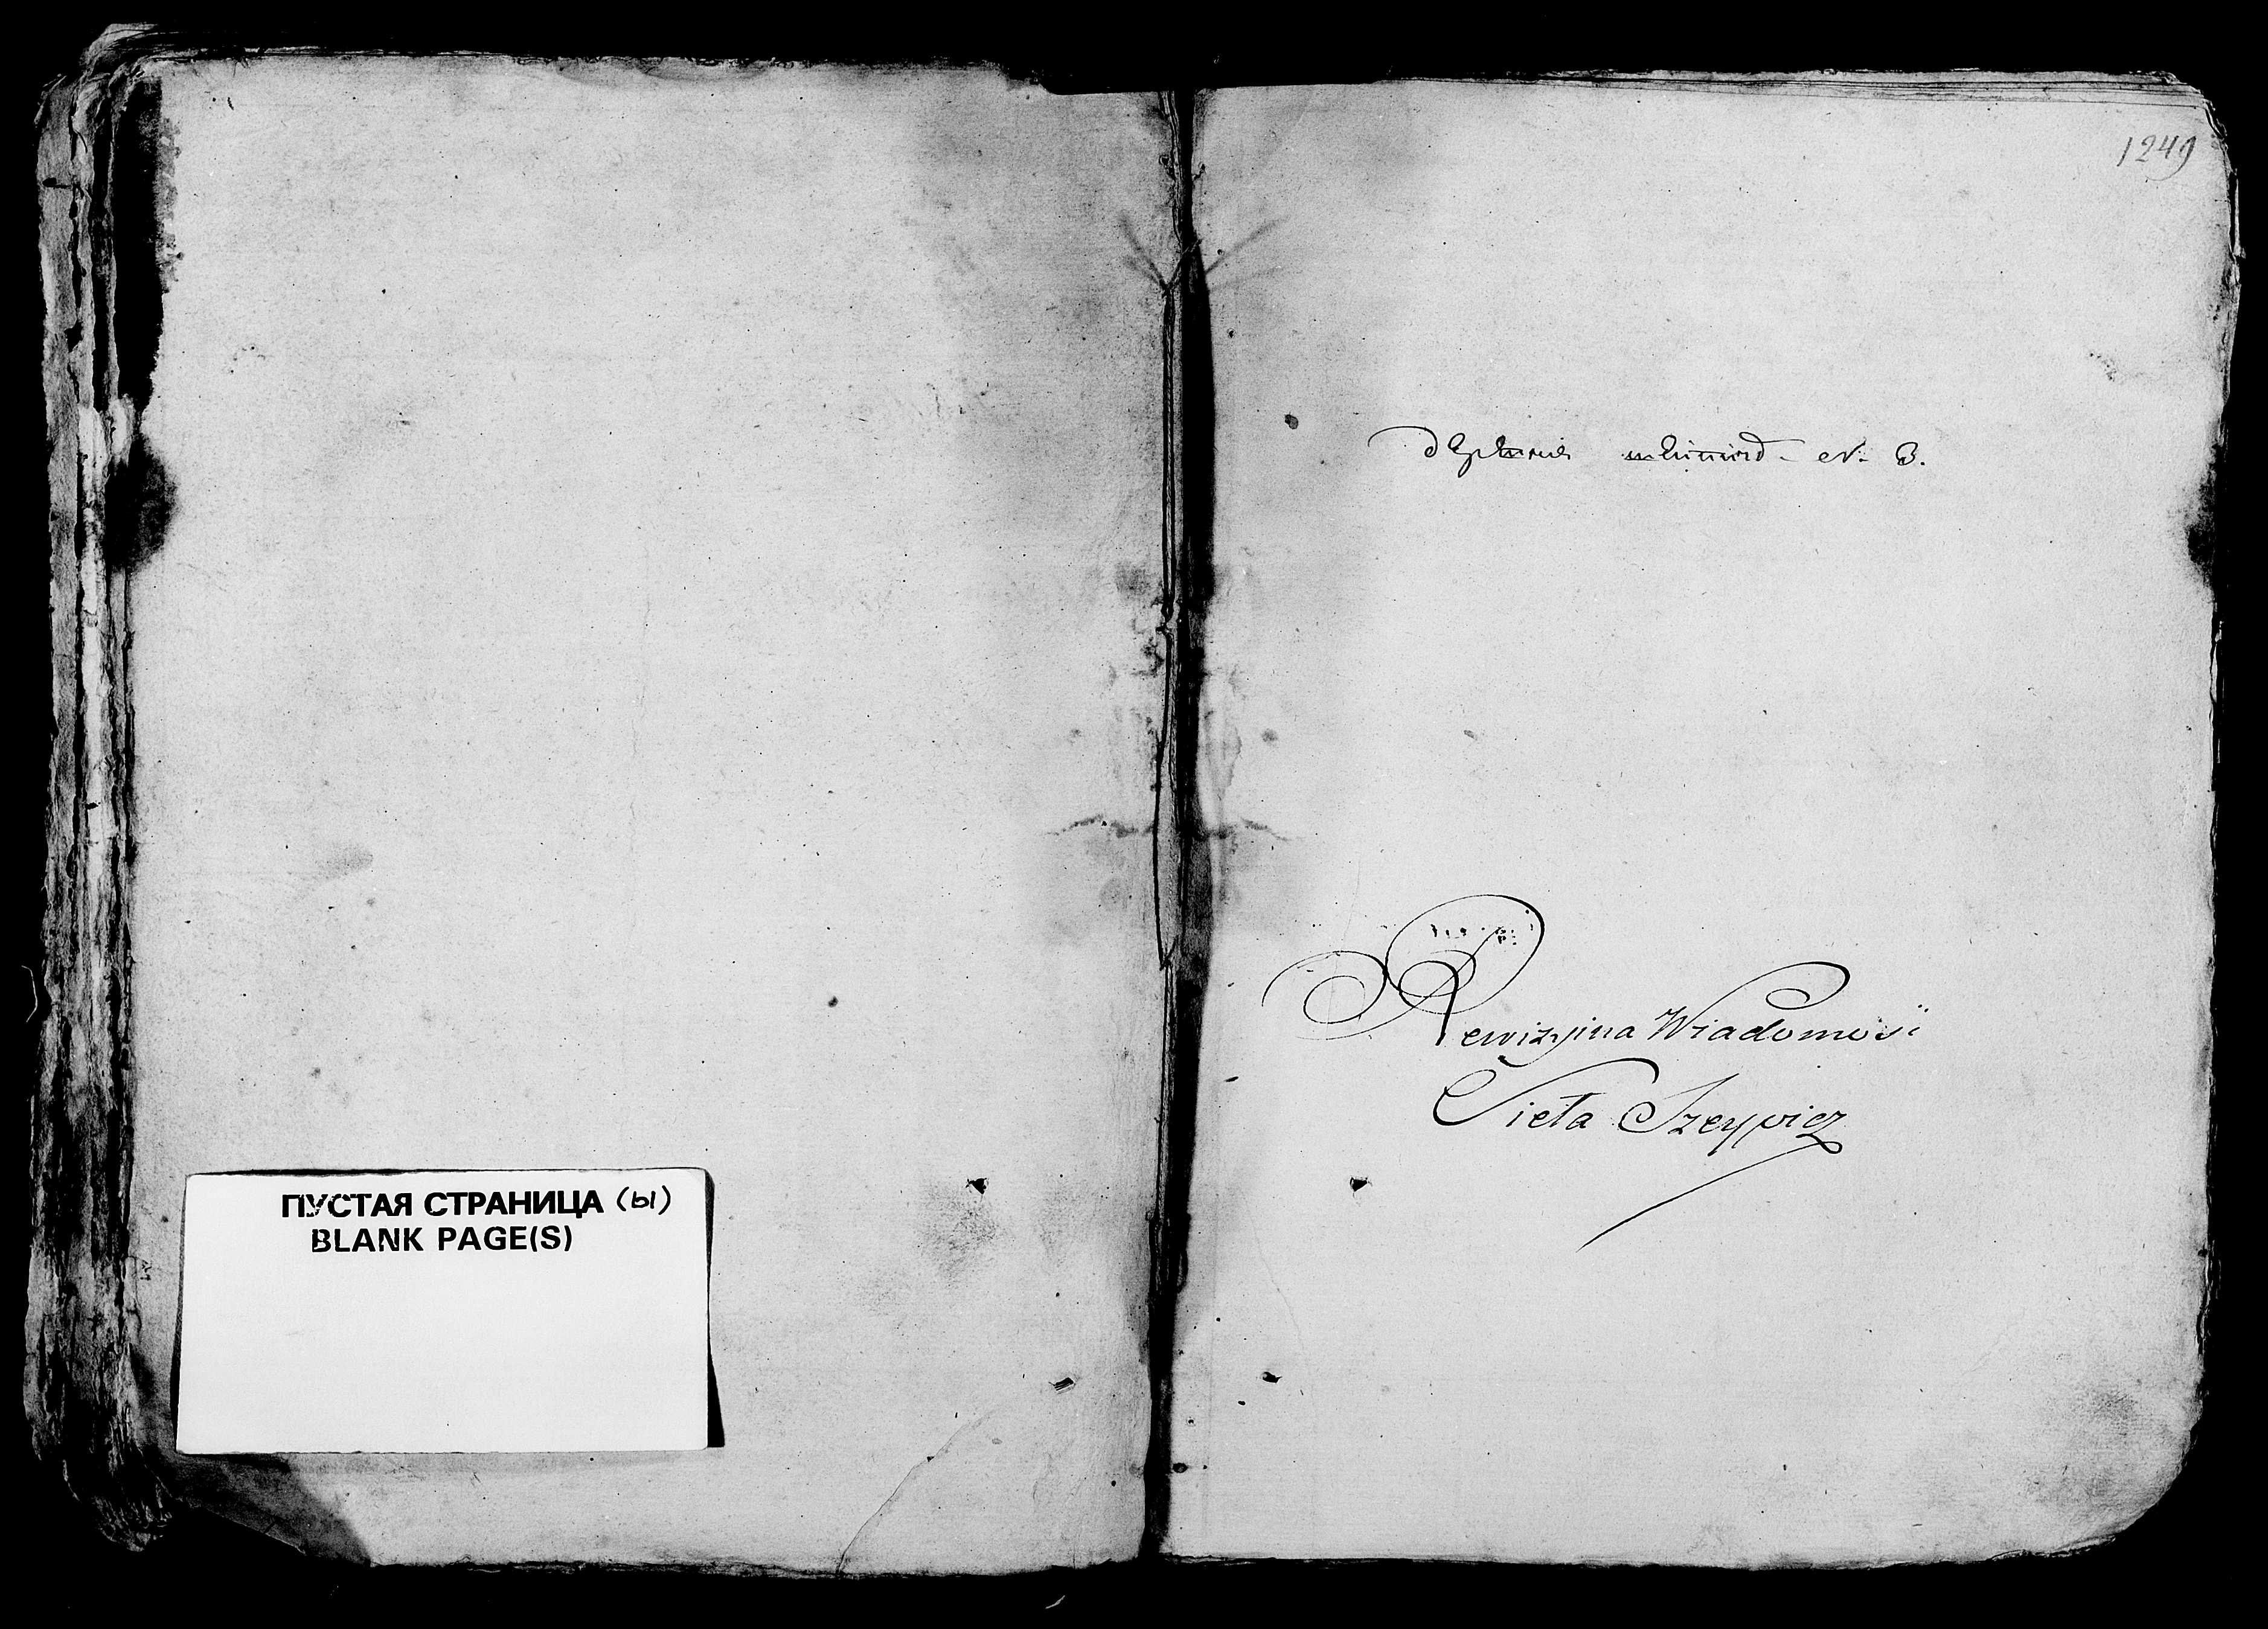 ПУСТАЯ СТРАНИЦА (ы)
BLANK PAGE(S)
1249
Rewizyina Wiadomosi
Sieła Szeypicz